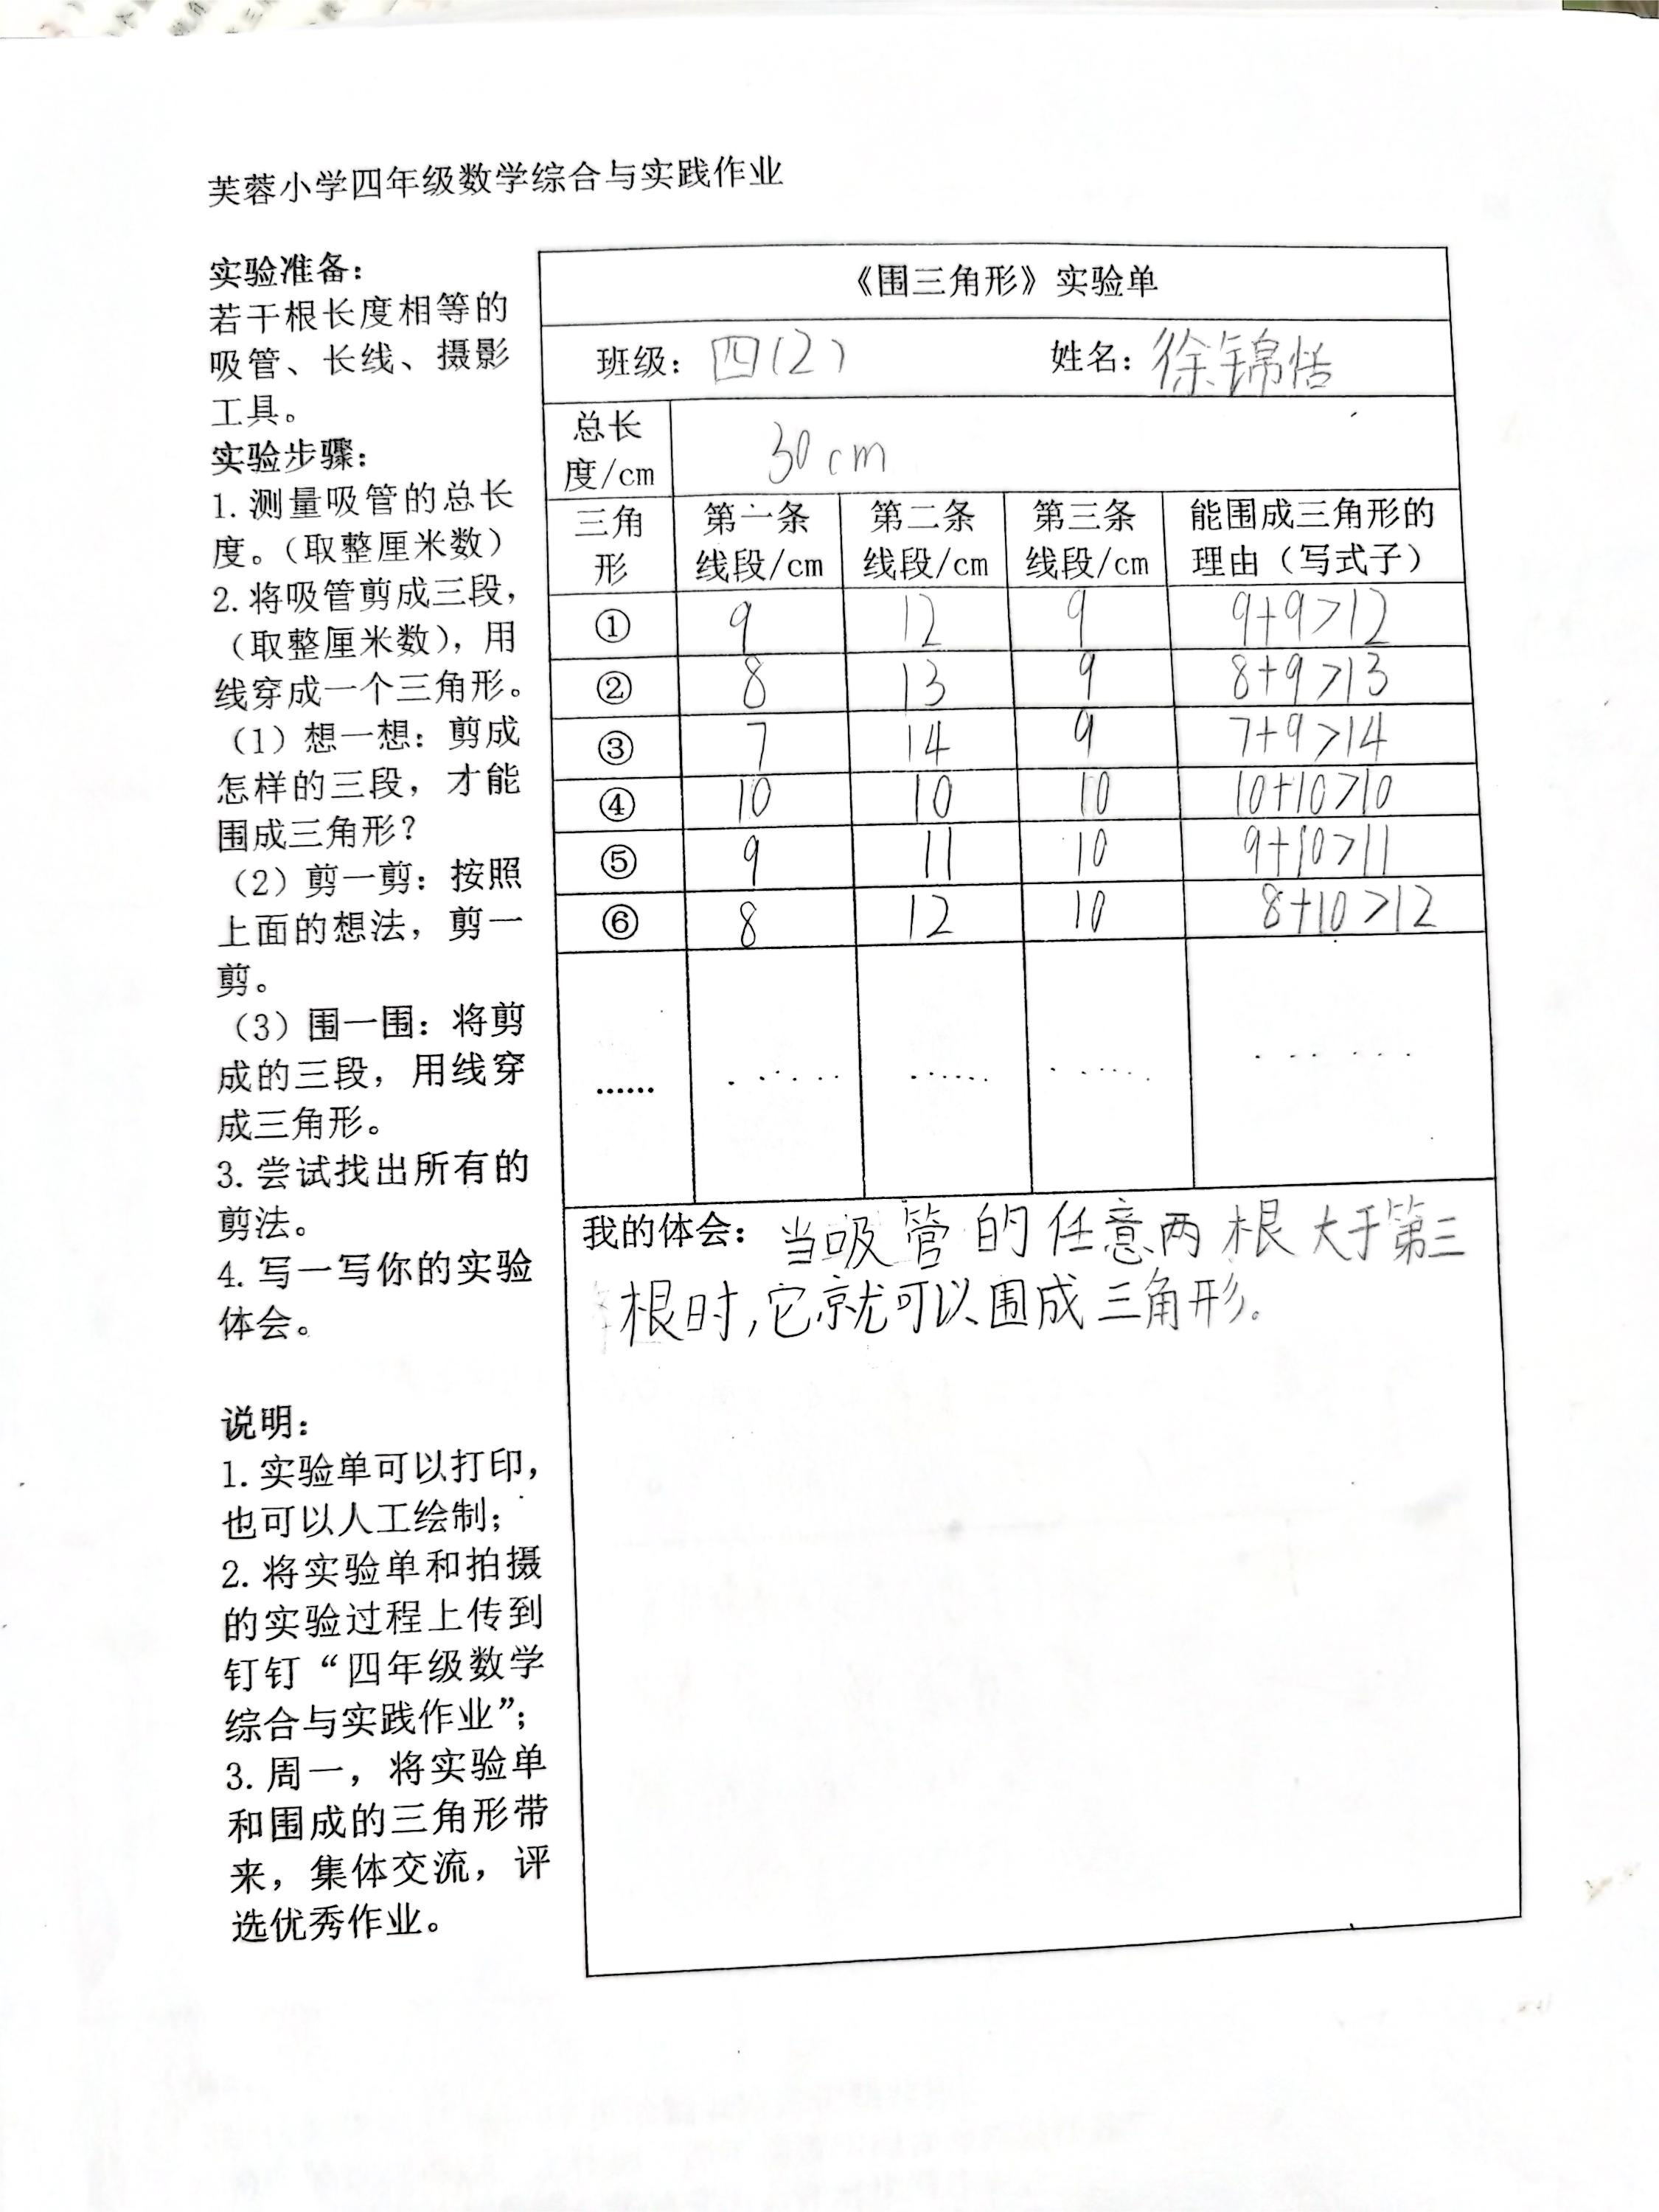 芙蓉小学四年级数学综合与实践作业
实验准备：
若干根长度相等的
吸管、长线、摄影
工具。
实验步骤：
1.测量吸管的总长
度。（取整厘米数）
2.将吸管剪成三段，
（取整厘米数），用
线穿成一个三角形。
（1）想一想：剪成
怎样的三段，才能
围成三角形？
（2）剪一剪：按照
上面的想法，剪一
剪。
（3）围一围：将剪
成的三段，用线穿
成三角形。
3.尝试找出所有的
剪法。
4.写一写你的实验
体会。
说明：
1.实验单可以打印，
也可以人工绘制；
2.将实验单和拍摄
的实验过程上传到
钉钉“四年级数学
综合与实践作业”；
3.周一，将实验单
和围成的三角形带
来，集体交流，评
选优秀作业。
《围三角形》实验单
班级：四（2） 姓名：徐锦恬
总长
度/cm 30cm
三角 第一条 第二条 第三条 能围成三角形的
形 线段/cm 线段/cm 线段/cm 理由（写式子）
① 9 12 9 9+9>12
② 8 13 9 8+9>13
③ 7 14 9 7+9>14
④ 10 10 10 10+10>10
⑤ 9 11 10 9+10>11
⑥ 8 12 10 8+10>12
…… …… …… …… ……
我的体会：当吸管的任意两根大于第三
根时，它就可以围成三角形。